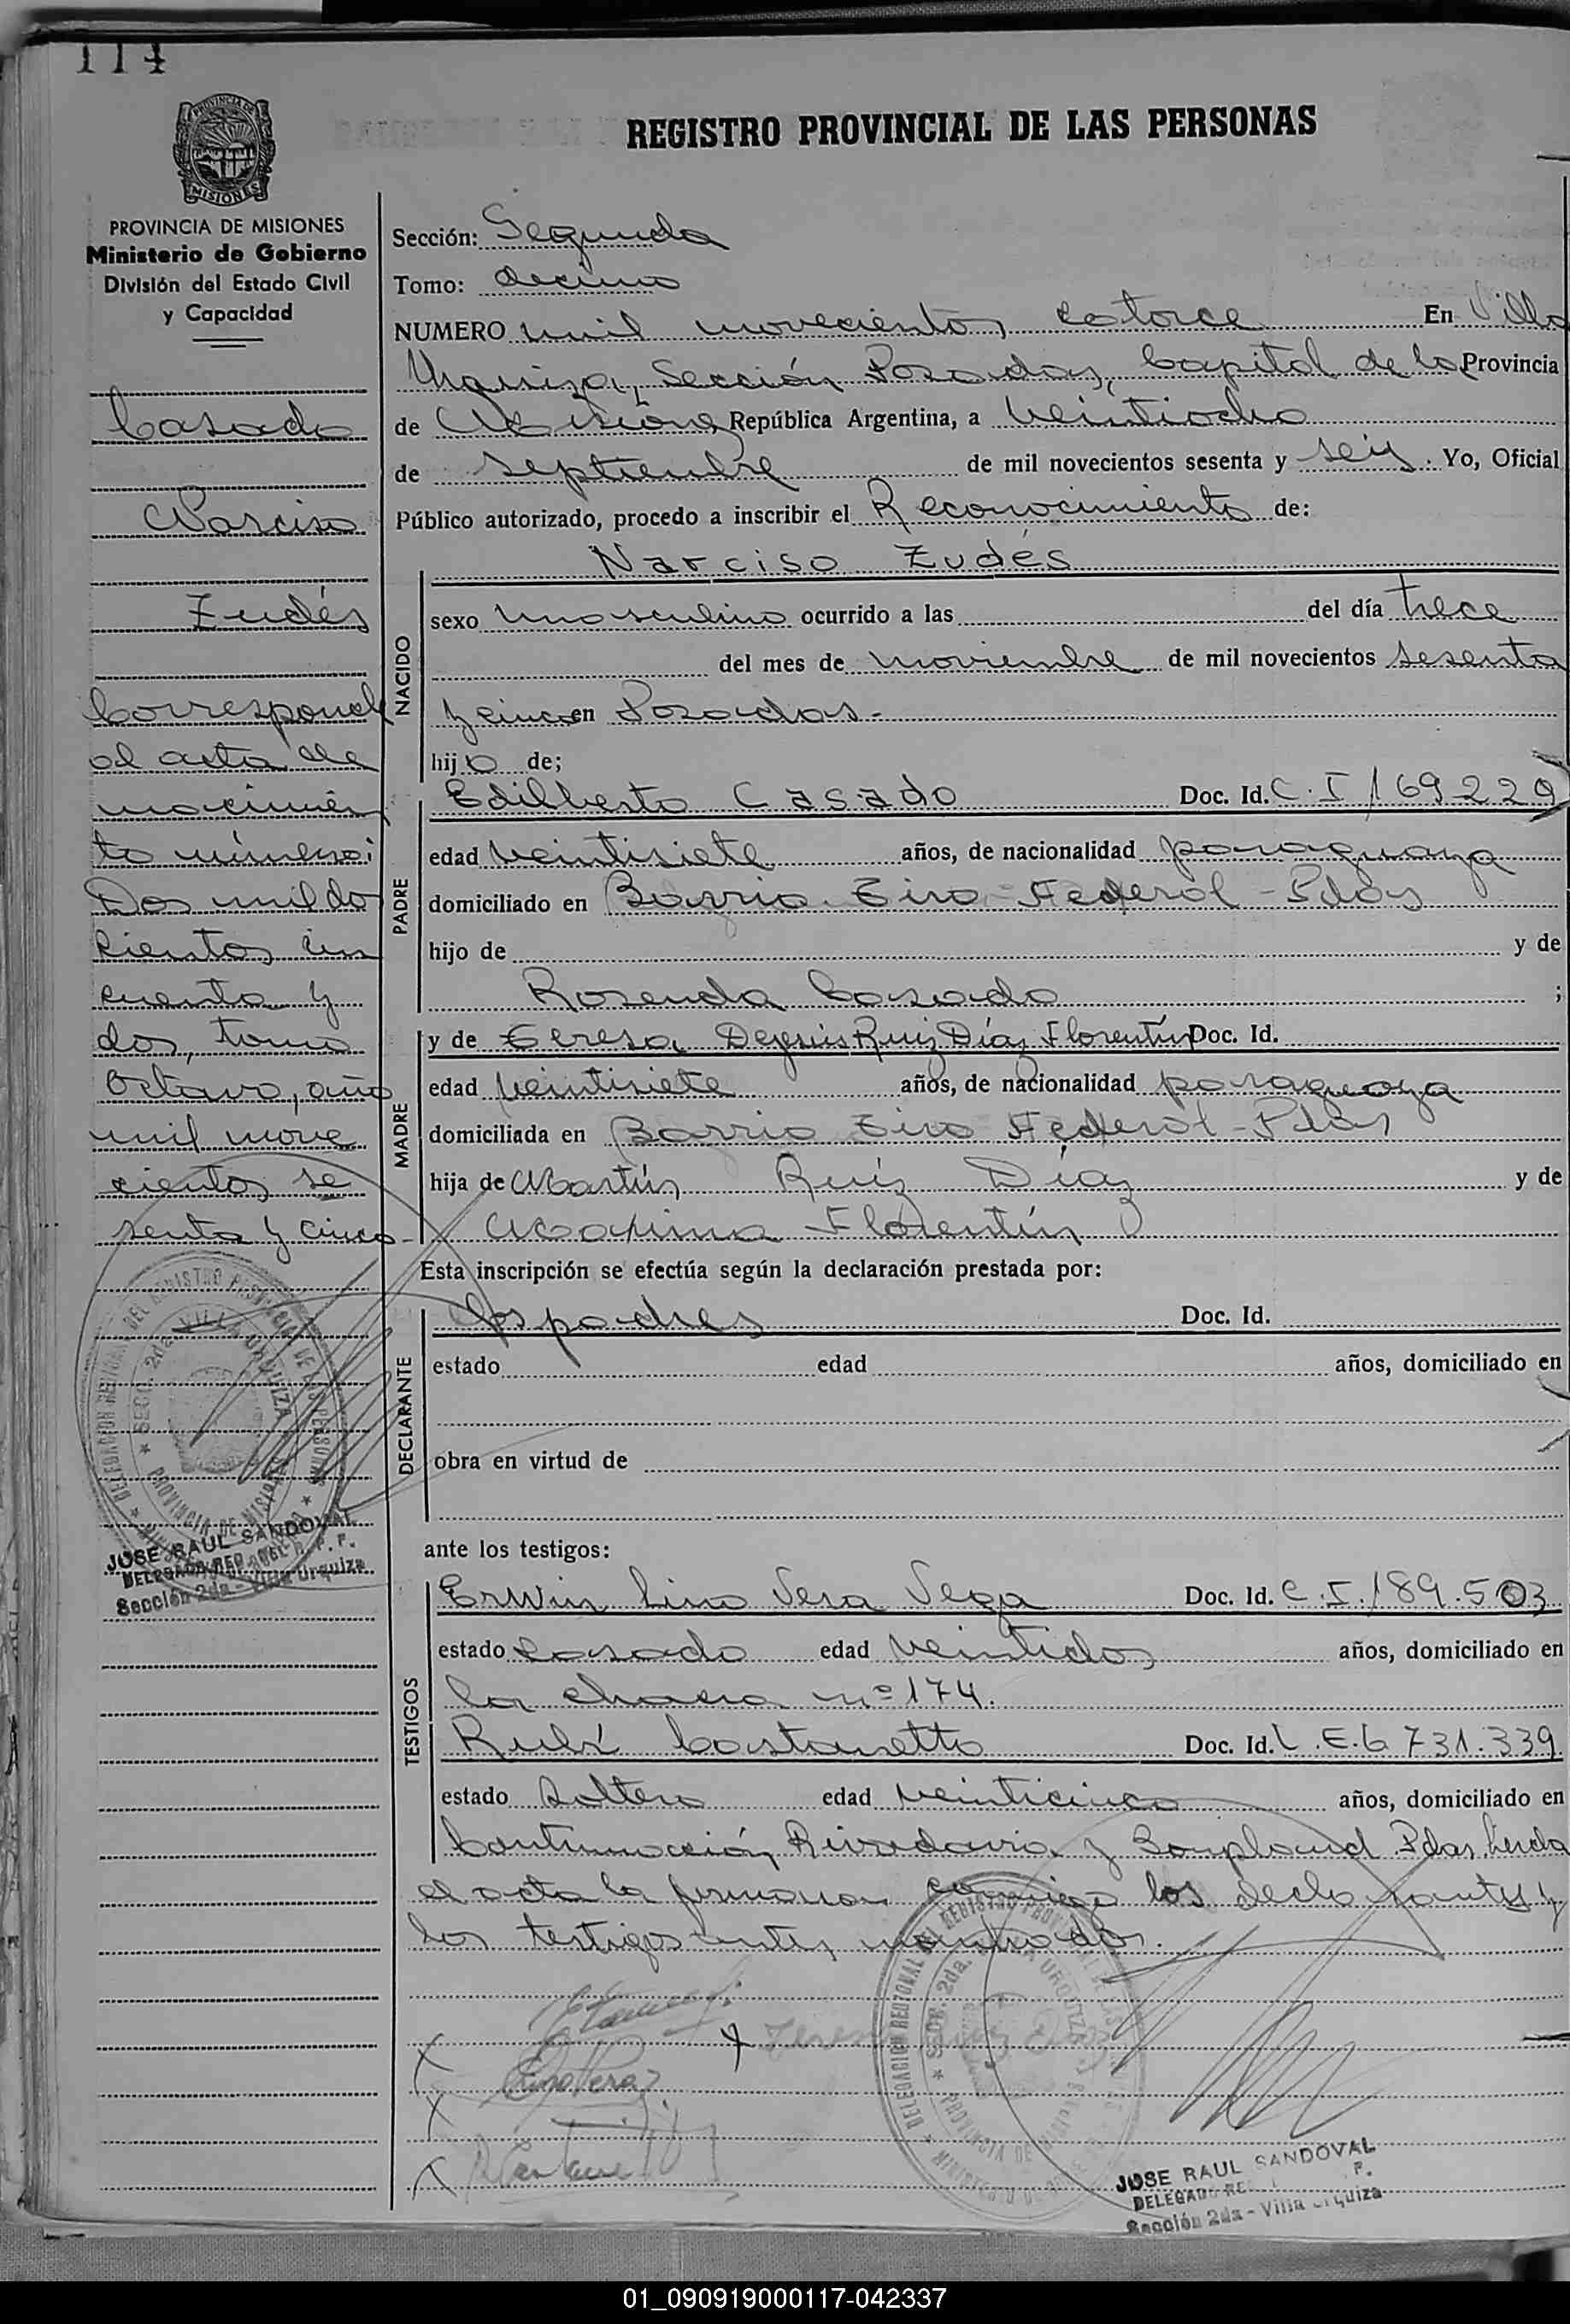 114
REGISTRO PROVINCIAL DE LAS PERSONAS
PROVINCIA DE MISIONES
Ministerio de Gobierno
División del Estado Civil
y Capacidad
Casado
Narciso
Zudés
Corresponde
al acta de
nacimien
to número:
Dos mil dos
cientos cin
cuenta y
dos, tomo
Octavo, año
mil nove
cientos se
senta y cinco
JOSE RAUL SANDOVAL
DELEGADO REG. DEL R. P. P.
Sección 2da - Villa Urquiza
Sección: Segunda
Tomo: decimo
NUMERO mil novecientos catorce En Villa
Urquiza, Sección Posadas, Capital de la Provincia
de Misiones República Argentina, a veintiocho
de septiembre de mil novecientos sesenta y seis. Yo, Oficial
Público autorizado, procedo a inscribir el Reconocimiento de:
Narciso Zudés
NACIDO
sexo masculino ocurrido a las del día trece
del mes de noviembre de mil novecientos sesenta
y cinco en Posadas.-
hijo de;
PADRE
Edilberto Casado Doc. Id. C.I 169229
edad veintisiete años, de nacionalidad paraguaya
domiciliado en Barrio Tiro Federal - Pdas
hijo de y de
Rosenda Casado ;
MADRE
y de Teresa Dejesús Ruiz Díaz Florentín Doc. Id.
edad veintisiete años, de nacionalidad paraguaya
domiciliada en Barrio Tiro Federal - Pdas
hija de Martín Ruiz Díaz y de
Maxima Florentín
Esta inscripción se efectúa según la declaración prestada por:
DECLARANTE
los padres Doc. Id.
estado edad años, domiciliado en
obra en virtud de
ante los testigos:
TESTIGOS
Erwin Lino Vera Vega Doc. Id. C.I.189.503
estado casado edad veintidos años, domiciliado en
la chacra nº 174.
Rubí Castanetto Doc. Id. L.E.6731.339
estado Soltero edad veinticinco años, domiciliado en
Continuación Rivadavia y Bonpland Pdas. Leida
el acta la firmaron conmigo los declarantes y
los testigos antes nombrados.
JOSE RAUL SANDOVAL
DELEGADO
Sección 2da - Villa Urquiza
01_090919000117-042337